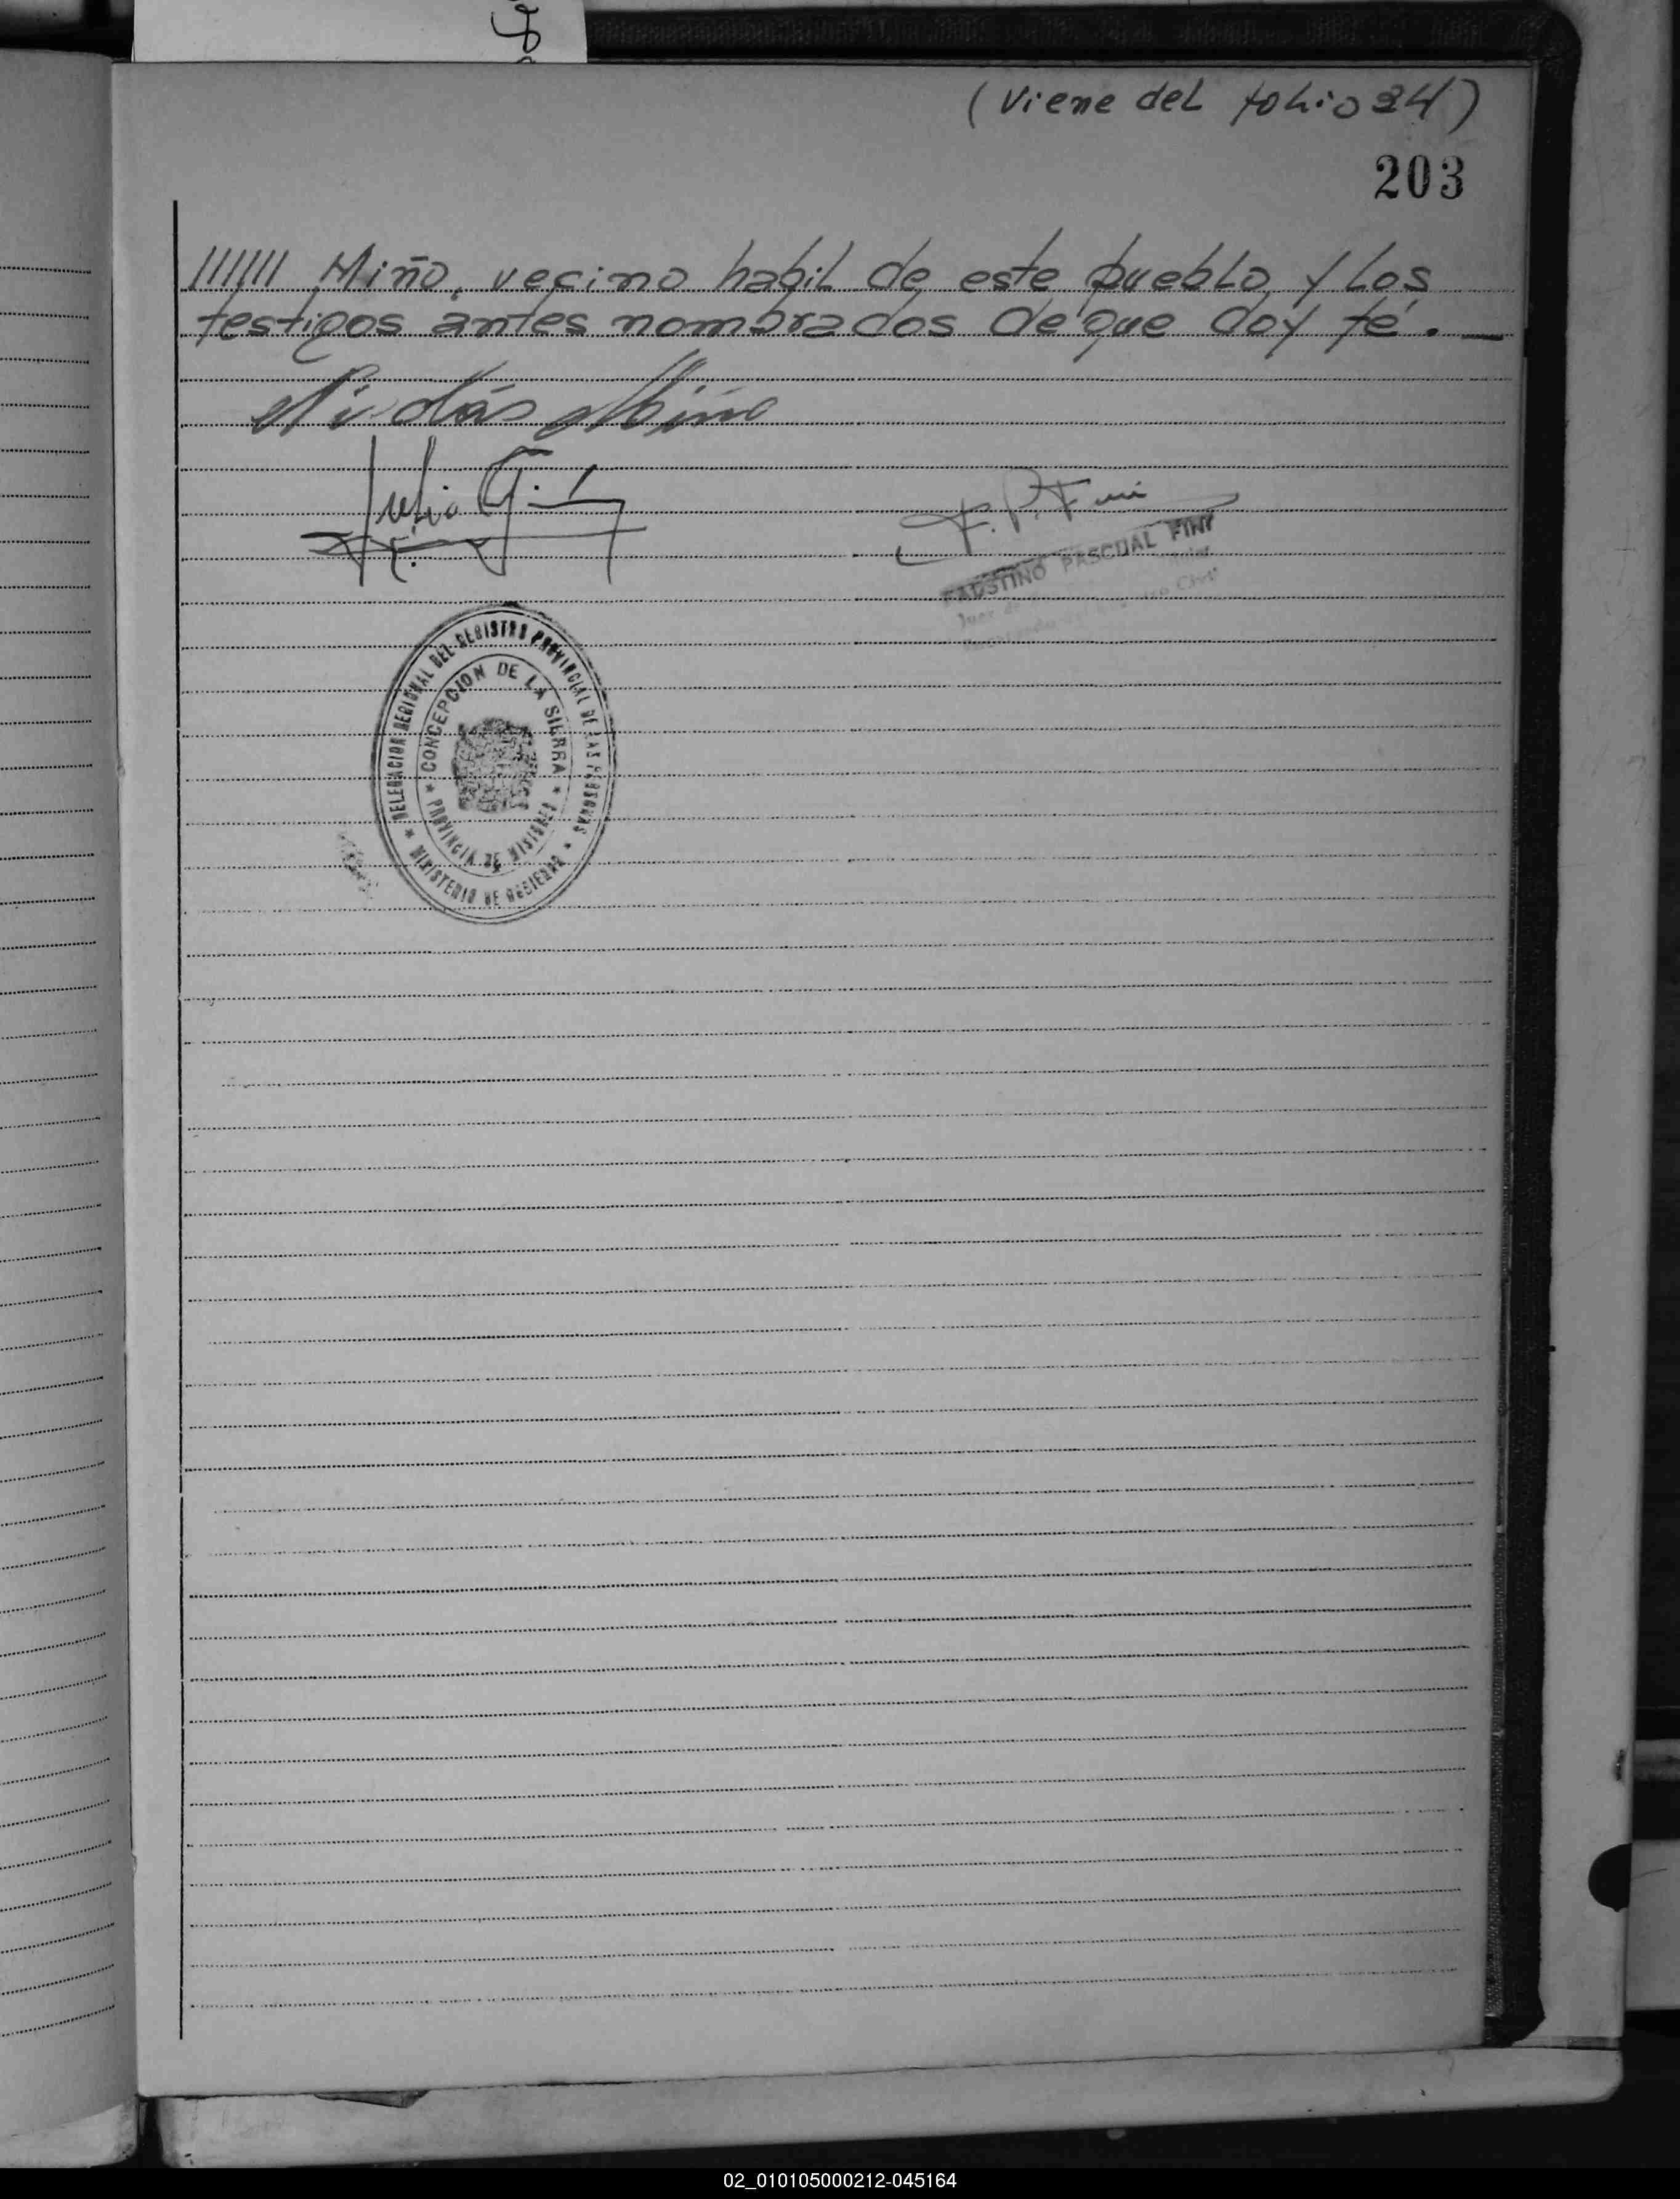 (Viene del folio 34)
203
////// Miño, vecino habil de este pueblo, y los
testigos antes nombrados de que doy fé. —
Nicolás Miño
Julio G.
F. P. Fini
FAUSTINO PASCUAL FINI
Juez de
DELEGACION REGIONAL DEL REGISTRO PROVINCIAL DE LAS PERSONAS
CONCEPCION DE LA SIERRA
PROVINCIA DE MISIONES
MINISTERIO DE GOBIERNO
02_010105000212-045164